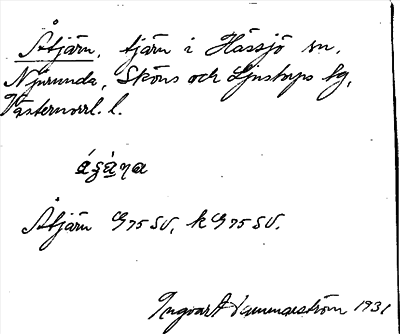 Åtjärn, tjärn i Hässjö sn,
Njurunda, Sköns och Ljustorps tg,
Västernorrl. l.
Åtjärn G 75 SV, k G 75 SV.
Ingvar Hammarström 1931